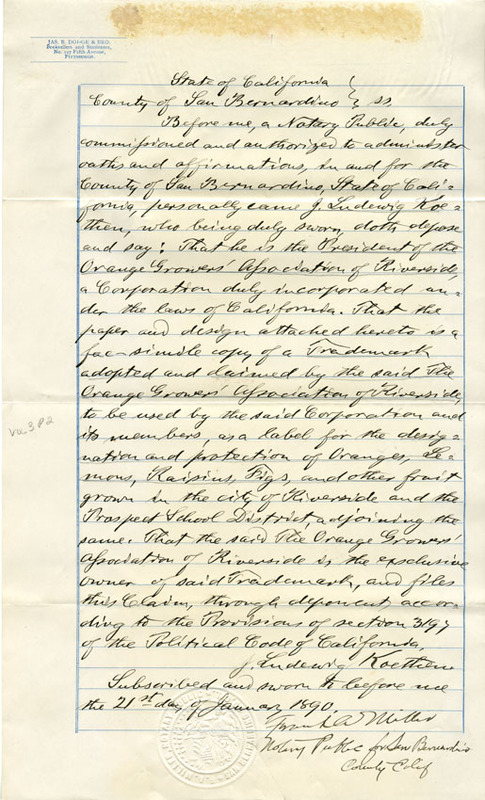 JAS. B. DODGE & BRO.
Booksellers and Stationers,
Fifth Avenue,
State of California }
County of San Bernardino } ss
Before me, a Notary Public, duly
commissioned and authorized to administer
oaths and affirmations, in and for the
County of San Bernardino, State of Cali=
fornia, personally came J. Ludewig Koe=
then, who being duly sworn, doth depose
and say: That he is the President of the
Orange Growers' Association of Riverside,
a Corporation duly incorporated un=
der the laws of California. That the
paper and design attached hereto is a
fac-simile copy of a Trademark
adopted and claimed by the said The
Orange Growers' Association of Riverside,
to be used by the said Corporation and
its members, as a label for the desig=
nation and protection of Oranges, Le=
mons, Raisins, Figs, and other fruit
grown in the city of Riverside and the
Prospect School District, adjoining the
same. That the said The Orange Growers'
Association of Riverside is the exclusive
owner of said Trademark, and files
this Claim, through deponent, accor=
ding to the Provisions of section 3197
of the Political Code of California.
J. Ludewig Koethen
Subscribed and sworn to before me
the 21st day of January 1890.
Frank A Miller
Notary Public for San Bernardino
County Calif